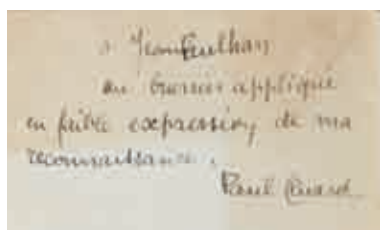 à Jean Paulhan
au Guerrier appliqué
en faible expression de ma
reconnaissance.
Paul Éluard